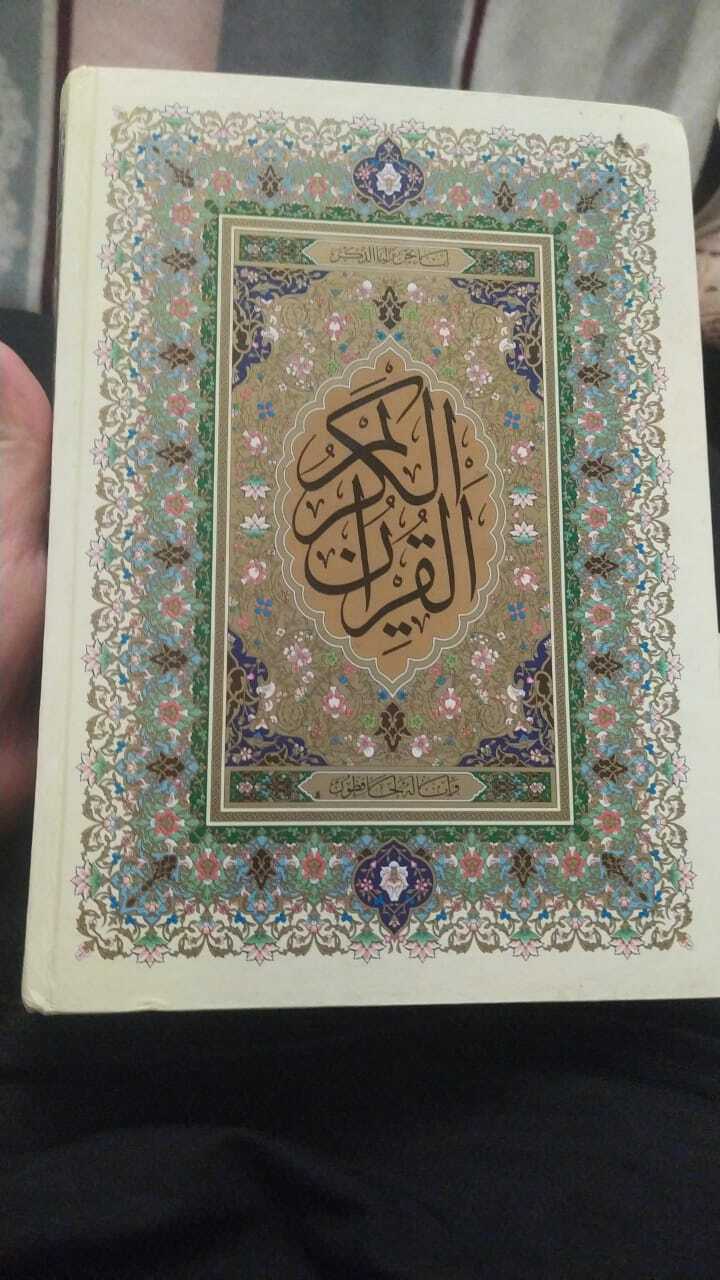 إنا نحن نزلنا الذكر
القرآن الكريم
وإنا له لحافظون